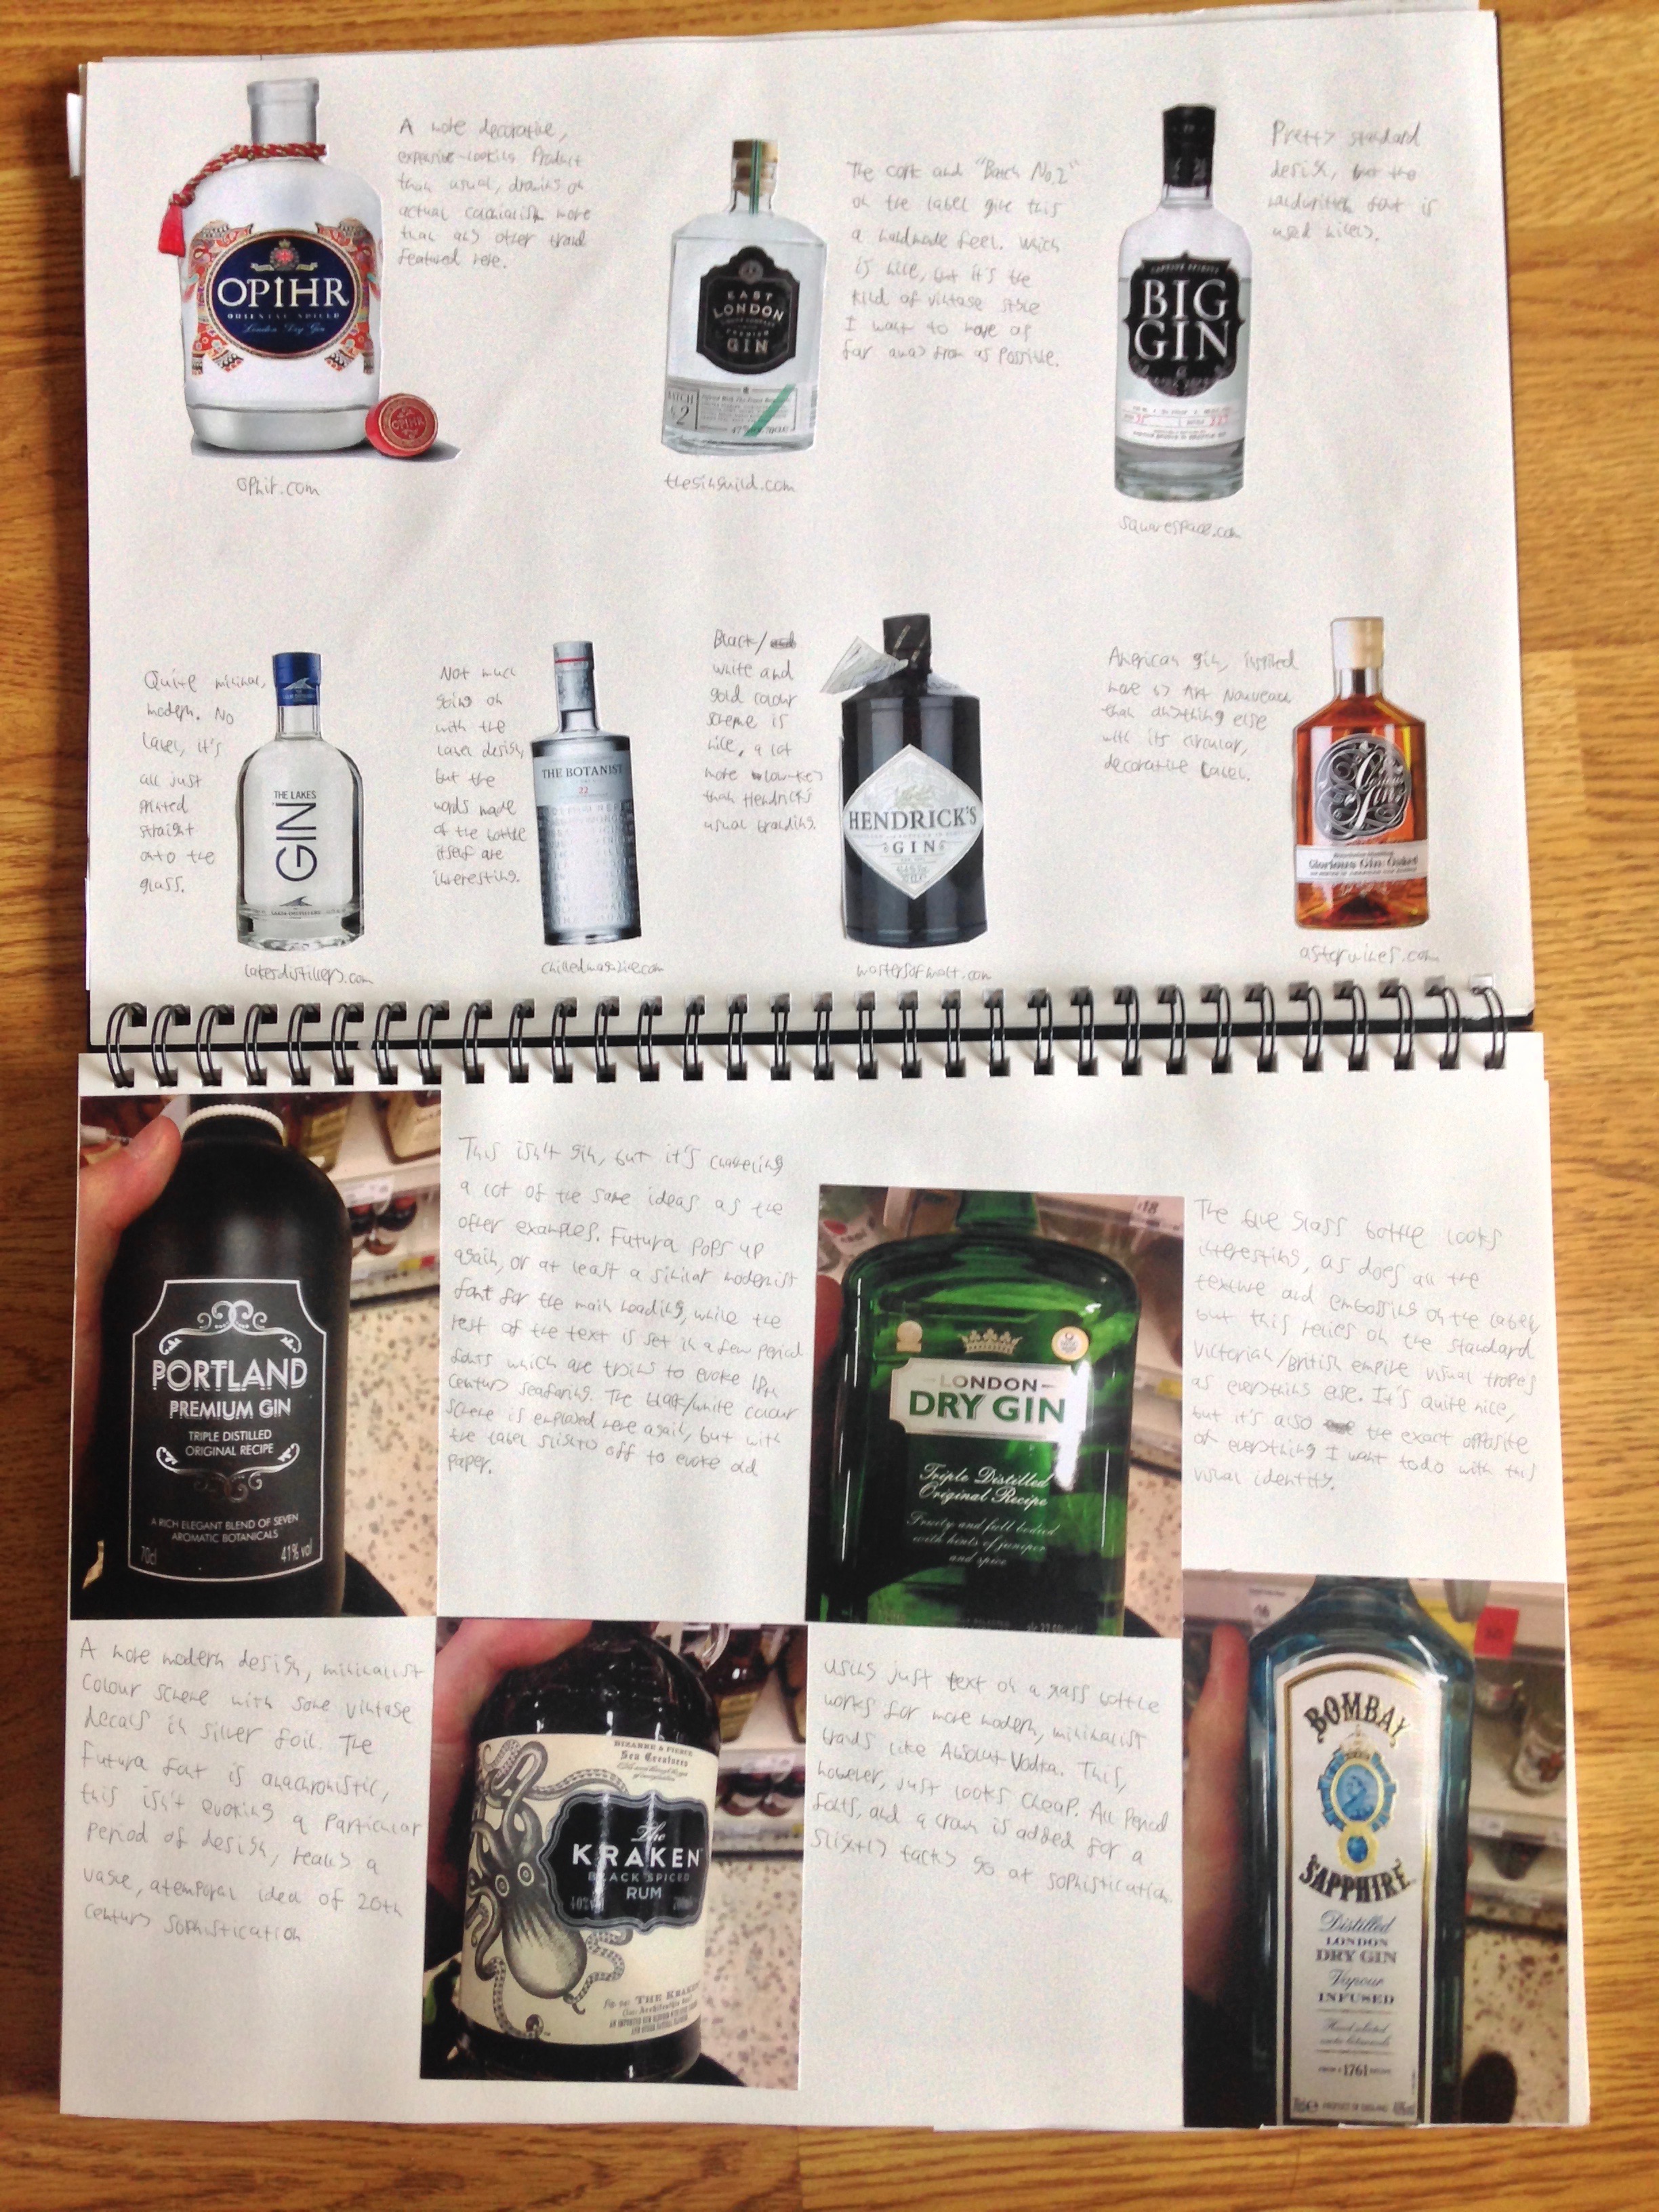 A more decorative,
expensive-looking product
than usual, drawing on
actual colonialism more
than any other brand
featured here.
OPIHR
ORIENTAL SPICED
London Dry Gin
OPIHR
opihr.com
The cork and "Batch No.2"
on the label give this
a handmade feel. Which
is nice, but it's the
kind of vintage style
I want to move as
far away from as possible.
EAST
LONDON
PREMIUM
GIN
BATCH
2
theginguild.com
Pretty standard
design, but the
handwritten font is
used nicely.
BIG
GIN
squarespace.com
Quite minimal,
modern. No
label, it's
all just
printed
straight
onto the
glass.
THE LAKES
GIN
lakesdistillery.com
Not much
going on
with the
label design,
but the
words made
of the bottle
itself are
interesting.
THE BOTANIST
22
chilledmagazine.com
Black/
white and
gold colour
scheme is
nice, a lot
more low-key
than Hendrick's
usual branding.
HENDRICK'S
GIN
mastersofmalt.com
American gin, inspired
more by Art Nouveau
than anything else
with its circular,
decorative label.
Glorious Gin: Oaked
astorwines.com
PORTLAND
PREMIUM GIN
TRIPLE DISTILLED
ORIGINAL RECIPE
A RICH ELEGANT BLEND OF SEVEN
AROMATIC BOTANICALS
70cl 41% vol
This isn't gin, but it's channeling
a lot of the same ideas as the
other examples. Futura pops up
again, or at least a similar modernist
font for the main heading, while the
rest of the text is set in a few period
fonts which are trying to evoke 18th
century seafaring. The black/white colour
scheme is employed here again, but with
the label slightly off to evoke old
paper.
£18
LONDON
DRY GIN
Triple Distilled
Original Recipe
Fruity and full bodied
with hints of juniper
and spice
The blue glass bottle looks
interesting, as does all the
texture and embossing on the label,
but this relies on the standard
Victorian/British empire visual tropes
as everything else. It's quite nice,
but it's also the exact opposite
of everything I want to do with this
visual identity.
A more modern design, minimalist
colour scheme with some vintage
decals in silver foil. The
Futura font is anachronistic,
this isn't evoking a particular
period of design, really a
vague, atemporal idea of 20th
century sophistication
BIZARRE & FIERCE
Sea Creatures
The
KRAKEN
BLACK SPICED
RUM
THE KRAKEN
Using just text on a glass bottle
works for more modern, minimalist
brands like Absolut Vodka. This,
however, just looks cheap. All period
fonts, and a crown is added for a
slightly tacky go at sophistication.
BOMBAY
SAPPHIRE
Distilled
LONDON
DRY GIN
Vapour
INFUSED
1761